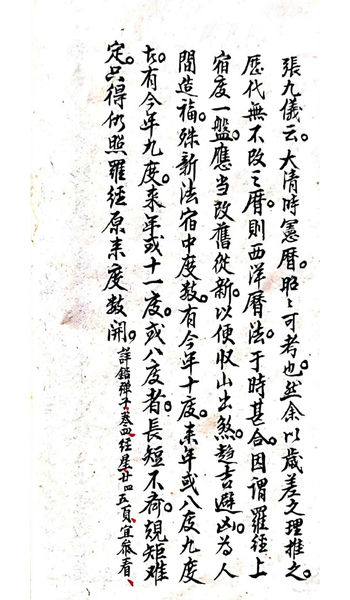 張九儀云。大清時憲曆。昭〻可考也。然余以歲差之理推之。
歷代無不改之曆。則西洋曆法。于時甚合。因謂羅經上
宿度一盤。應当改舊從新。以便收山出煞。趋吉避凶。為人
間造福。殊新法宿中度数。有今年十度。来年或八度九度
去。有今年九度。来年或十一度。或八度者。長短不齐。規矩难
定。只得仍照羅經原来度数開。詳鉛弹子叁四经星廿四五頁。宜叅看。